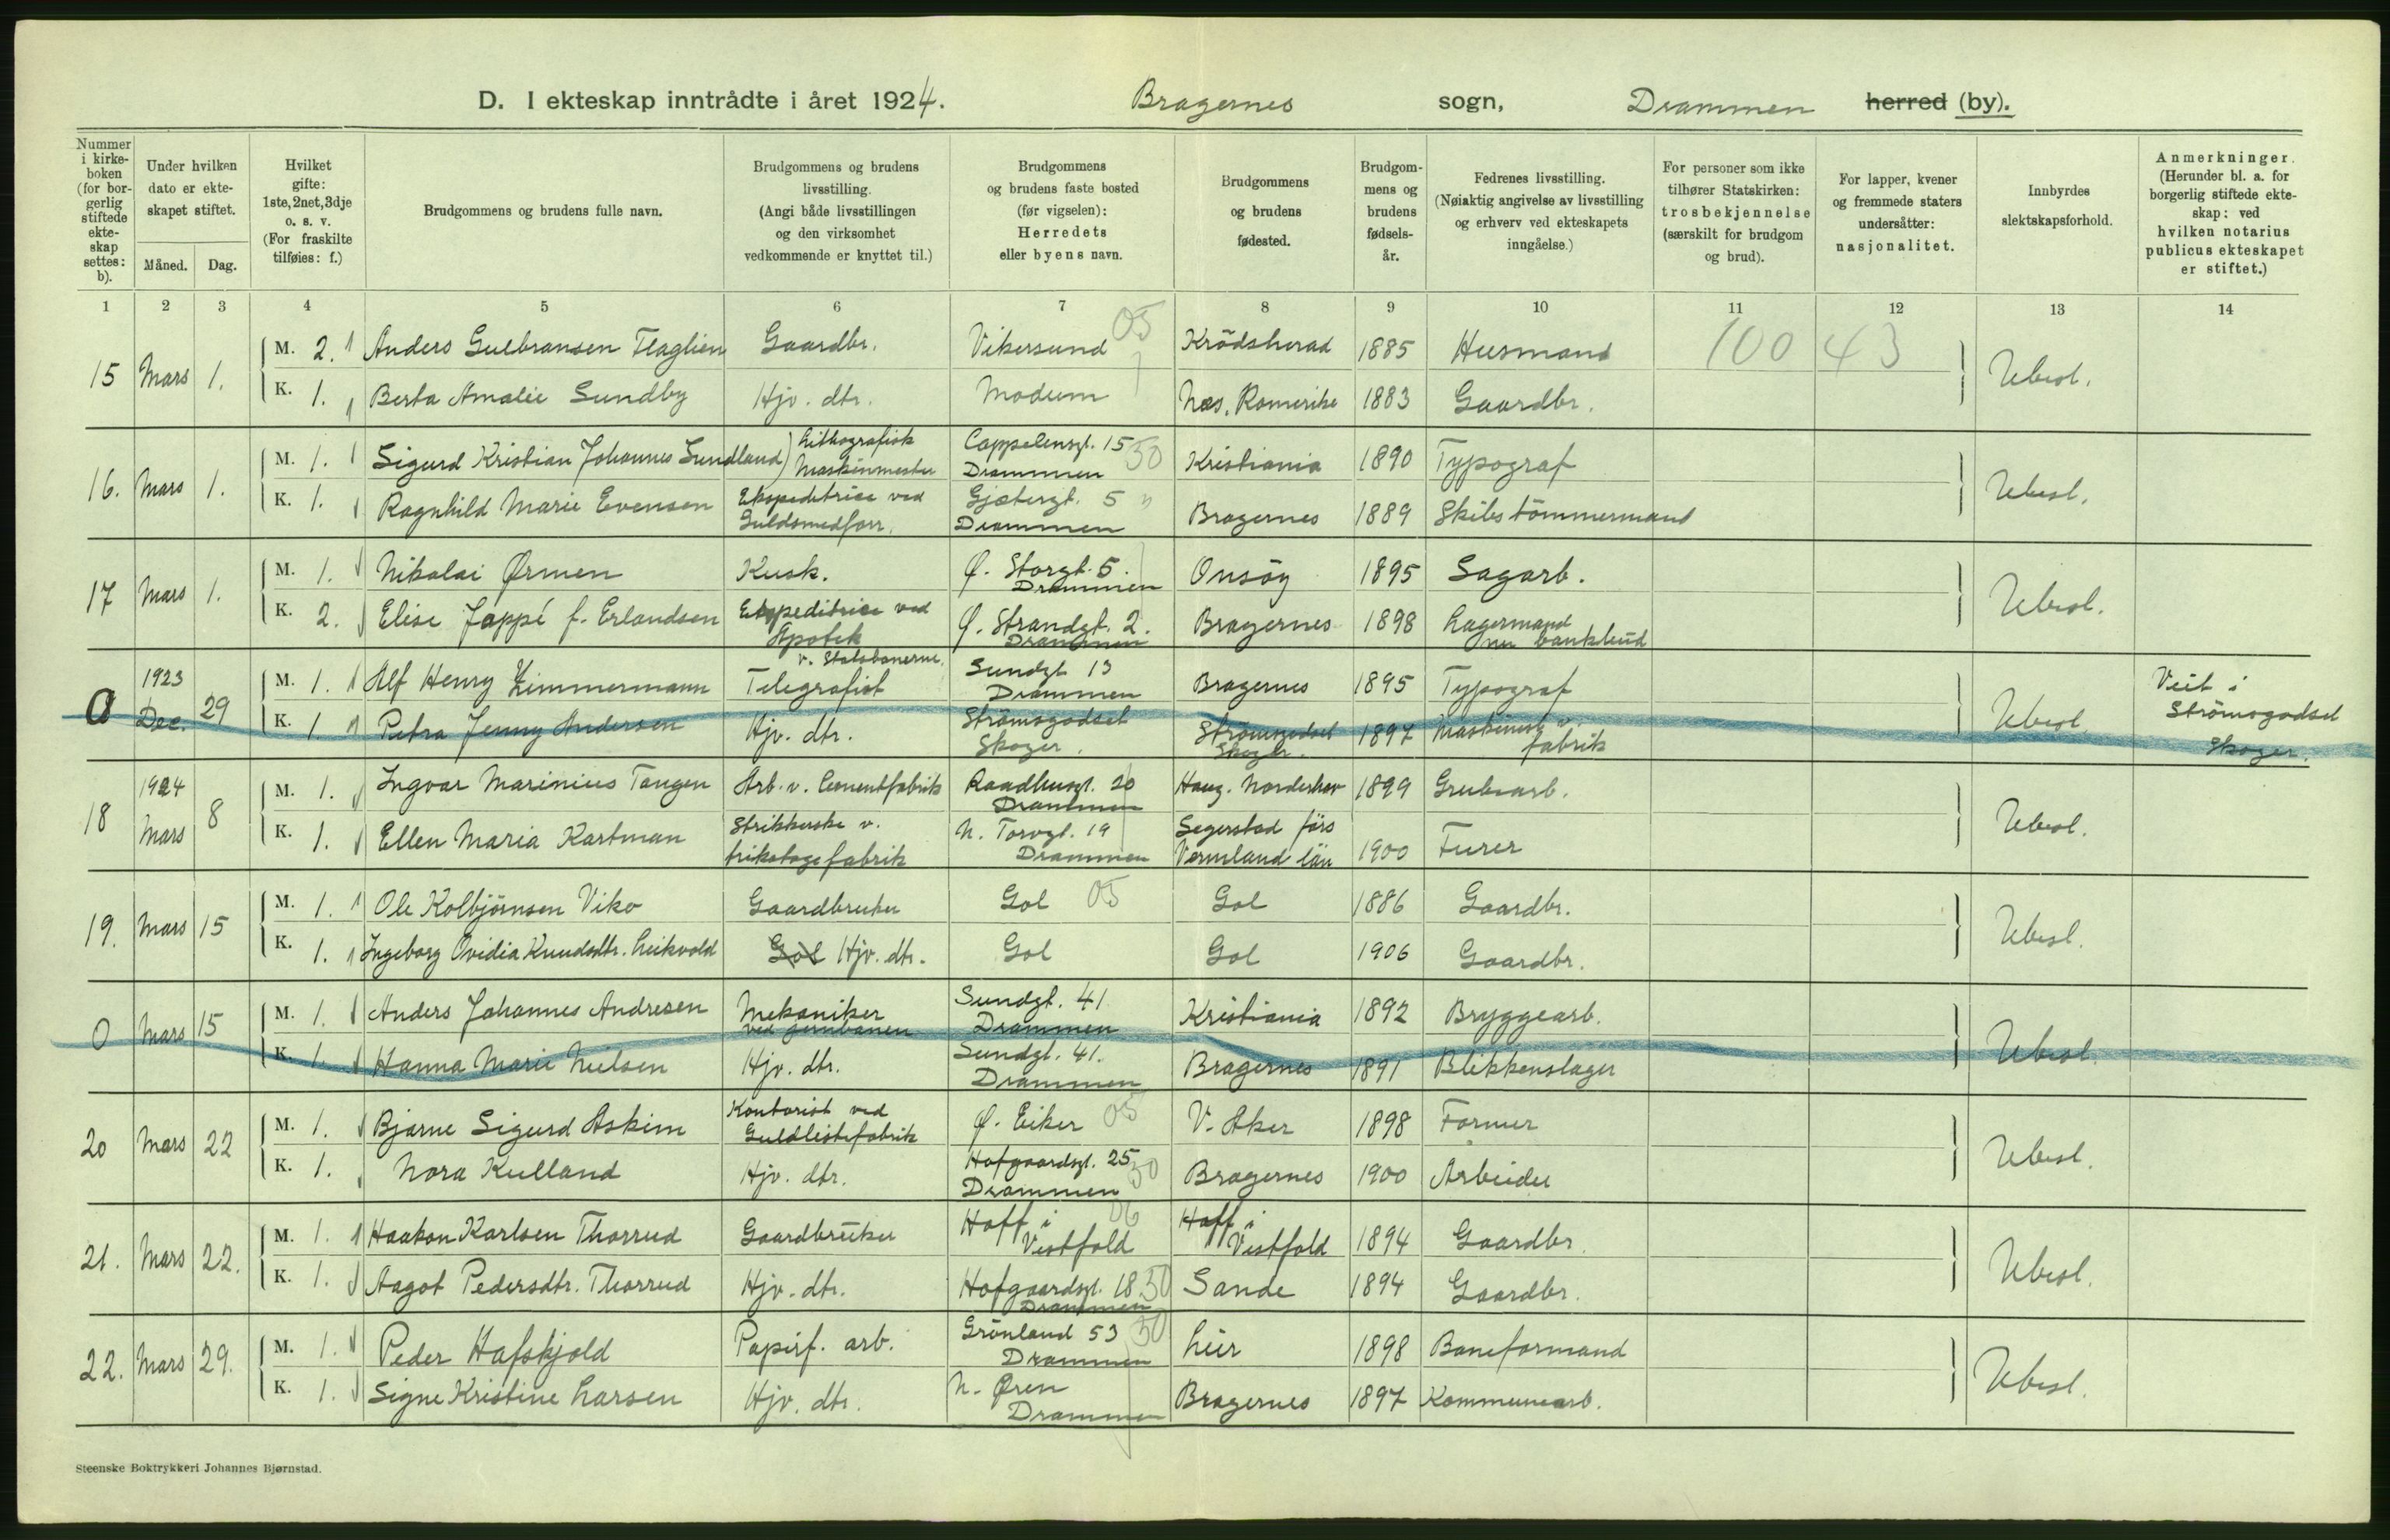 D. I ekteskap inntrådte i året 1924. Bragernes sogn, Drammen herred (by).
Nummer i kirke-boken (for bor-gerlig stiftede ekte-skap settes: b).
Under hvilken dato er ekte-skapet stiftet.
Måned. Dag.
Hvilket gifte: 1ste, 2net, 3dje o. s. v. (For fraskilte tilføies: f.)
Brudgommens og brudens fulle navn.
Brudgommens og brudens livsstilling. (Angi både livsstillingen og den virksomhet vedkommende er knyttet til.)
Brudgommens og brudens faste bosted (før vigselen): Herredets eller byens navn.
Brudgommens og brudens fødested.
Brudgom-mens og brudens fødsels-år.
Fedrenes livsstilling. (Nøiaktig angivelse av livsstilling og erhverv ved ekteskapets inngåelse.)
For personer som ikke tilhører Statskirken: trosbekjennelse (særskilt for brudgom og brud).
For lapper, kvener og fremmede staters undersåtter: nasjonalitet.
Innbyrdes slektskapsforhold.
Anmerkninger. (Herunder bl. a. for borgerlig stiftede ekte-skap: ved hvilken notarius publicus ekteskapet er stiftet.)
1 2 3 4 5 6 7 8 9 10 11 12 13 14
15 Mars 1. M. 2. Anders Gulbransen Flaglien Gaardbr. Vikersund 05 Krödsherad 1885 Husmand 100 43 Ubesl.
K. 1. Berta Amalie Sundby Hjv. dtr. Modum Næs, Romerike 1883 Gaardbr.
16. Mars 1. M. 1. Sigurd Kristian Johannes Sundland) Lithografisk Maskinmester Cappelensgt. 15 Drammen 30 Kristiania 1890 Typograf Ubesl.
K. 1. Ragnhild Marie Evensen Ekspeditrice ved Guldsmedforr. Gjetergt. 5 " Drammen Bragernes 1889 Skibstömmermand
17 Mars 1. M. 1. Nikolai Ørmen Kusk. Ø. Storgt. 5. Drammen Onsöy 1895 Sagarb. Ubesl.
K. 2. Elise Jappé f. Erlandsen Ekspeditrice ved Apotek Ø. Strandgt. 2. Drammen Bragernes 1898 Lagermand nu bankbud
0 1923 Dec. 29 M. 1. Alf Henry Zimmermann Telegrafist v. Statsbanerne. Sundgt 13 Drammen Bragernes 1895 Typograf Ubesl. Viet i Strömsgodset Skoger.
K. 1 Petra Jenny Andersen Hjv. dtr. Strömsgodset Skoger. Strömsgodset Skoger. 1897 Maskinist v. fabrik
18 1924 Mars 8 M. 1. Ingvar Marinius Tangen Arb. v. Cementfabrik Raadhusgt. 20 Drammen Haug. Norderhov 1899 Grubearb. Ubesl.
K. 1. Ellen Maria Kartman Strikkerske v. trikotagefabrik N. Torvgt. 19 Drammen Segerstad förs Vermland län 1900 Furer
19. Mars 15 M. 1. Ole Kolbjörnsen Viko Gaardbruker Gol 05 Gol 1886 Gaardbr. Ubesl.
K. 1. Ingeborg Ovidia Knudsdtr. Leikvold Gol Hjv. dtr. Gol Gol 1906 Gaardbr.
0 Mars 15 M. 1. Anders Johannes Andresen Mekaniker ved jernbanen Sundgt. 41 Drammen Kristiania 1892 Bryggearb. Ubesl.
K. 1. Hanna Marie Nielsen Hjv. dtr. Sundgt. 41. Drammen Bragernes 1891 Blikkenslager
20 Mars 22 M. 1. Bjarne Sigurd Askim Kontorist ved Guldlistefabrik Ø. Eiker 05 V. Aker 1898 Former Ubesl.
K. 1. Nora Kulland Hjv. dtr. Hofgaardsgt. 25 Drammen 30 Bragernes 1900 Arbeider
21. Mars 22. M. 1. Haakon Karlsen Thorrud Gaardbruker Hoff i Vestfold 06 Hoff i Vestfold 1894 Gaardbr. Ubesl.
K. 1. Aagot Pedersdtr. Thorrud Hjv. dtr. Hofgaardsgt. 18 Drammen 30 Sande 1894 Gaardbr.
22. Mars 29. M. 1. Peder Hafskjold Papirf. arb. Grönland 53 Drammen 30 Lier 1898 Baneformand Ubesl.
K. 1. Signe Kristine Larsen Hjv. dtr. N. Øren Drammen Bragernes 1897 Kommunearb.
Steenske Boktrykkeri Johannes Bjørnstad.